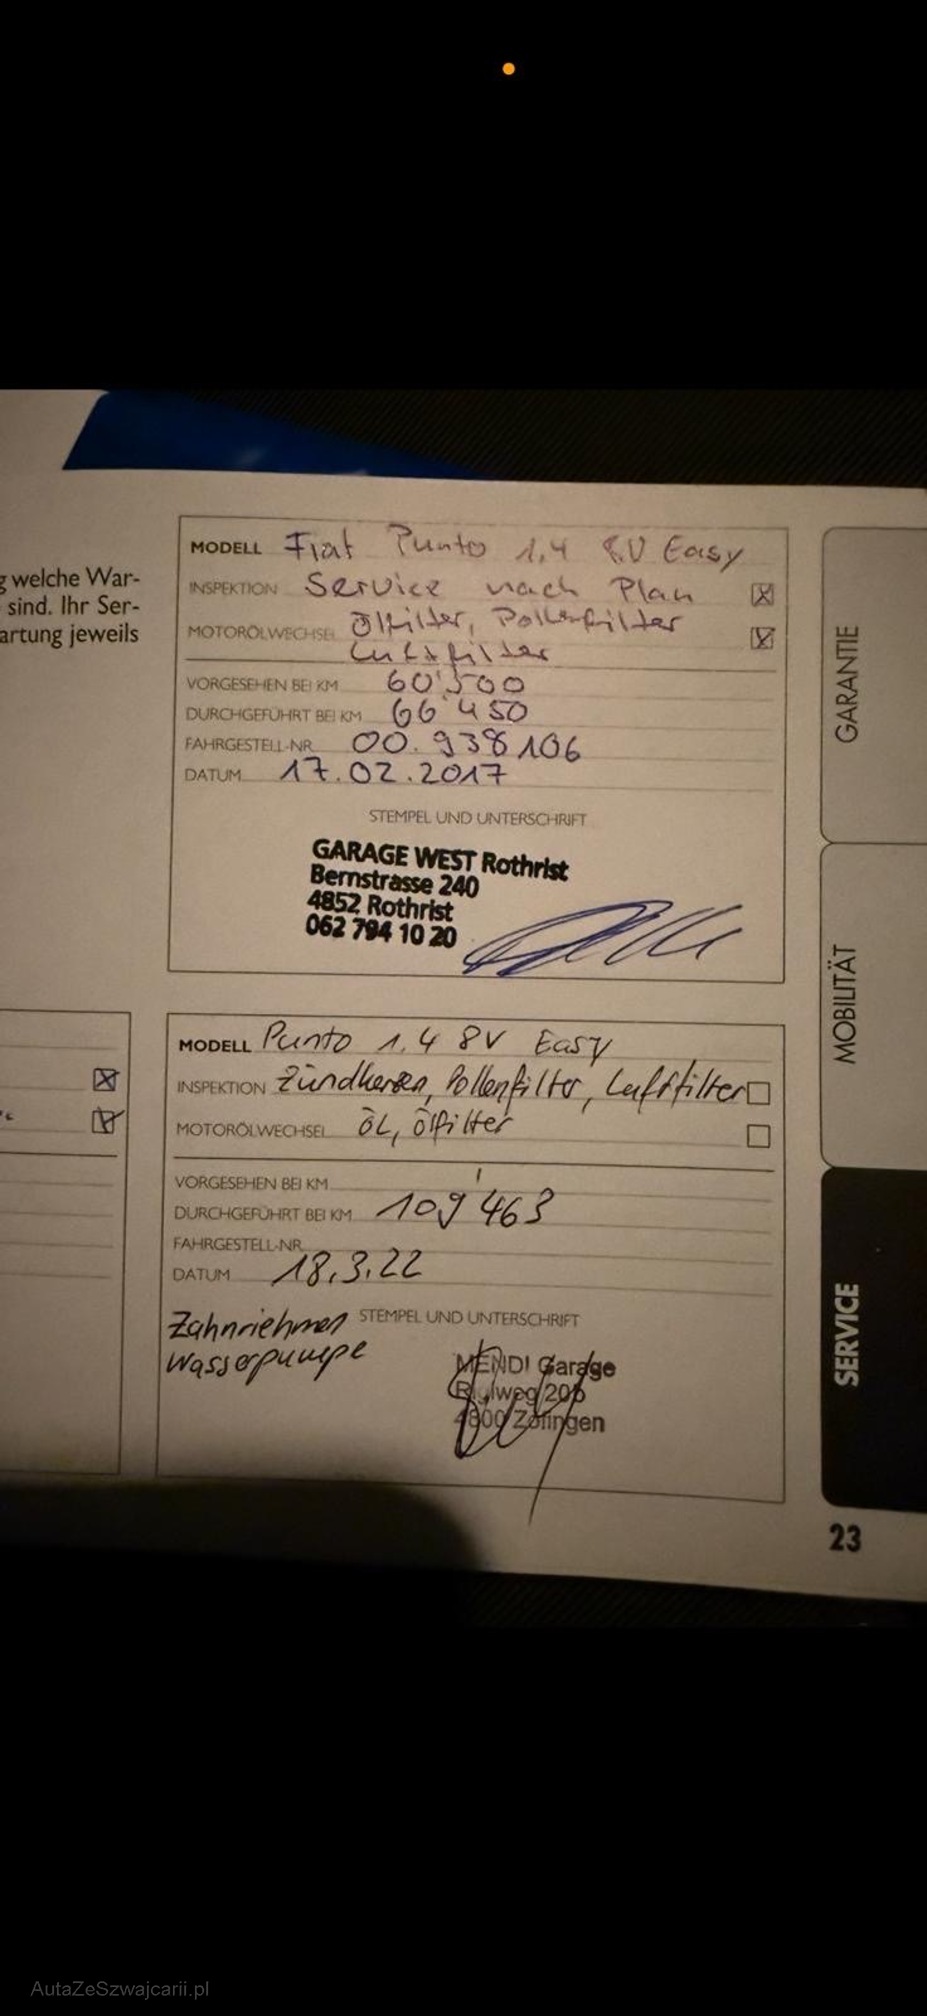 g welche War-
sind. Ihr Ser-
artung jeweils
MODELL Fiat Punto 1,4 8V Easy
INSPEKTION Service nach Plan
MOTORÖLWECHSEL Ölfilter, Pollenfilter
Luftfilter
VORGESEHEN BEI KM 60'500
DURCHGEFÜHRT BEI KM 66'450
FAHRGESTELL-NR. 00.938106
DATUM 17.02.2017
STEMPEL UND UNTERSCHRIFT
GARAGE WEST Rothrist
Bernstrasse 240
4852 Rothrist
062 794 10 20
MODELL Punto 1.4 8V Easy
INSPEKTION Zündkerzen, Pollenfilter, Luftfilter
MOTORÖLWECHSEL ÖL, Ölfilter
VORGESEHEN BEI KM
DURCHGEFÜHRT BEI KM 109'463
FAHRGESTELL-NR.
DATUM 18.3.22
Zahnriehmen STEMPEL UND UNTERSCHRIFT
Wasserpumpe
MENDI Garage
20b
4800 Zofingen
GARANTIE
MOBILITÄT
SERVICE
23
AutaZeSzwajcarii.pl